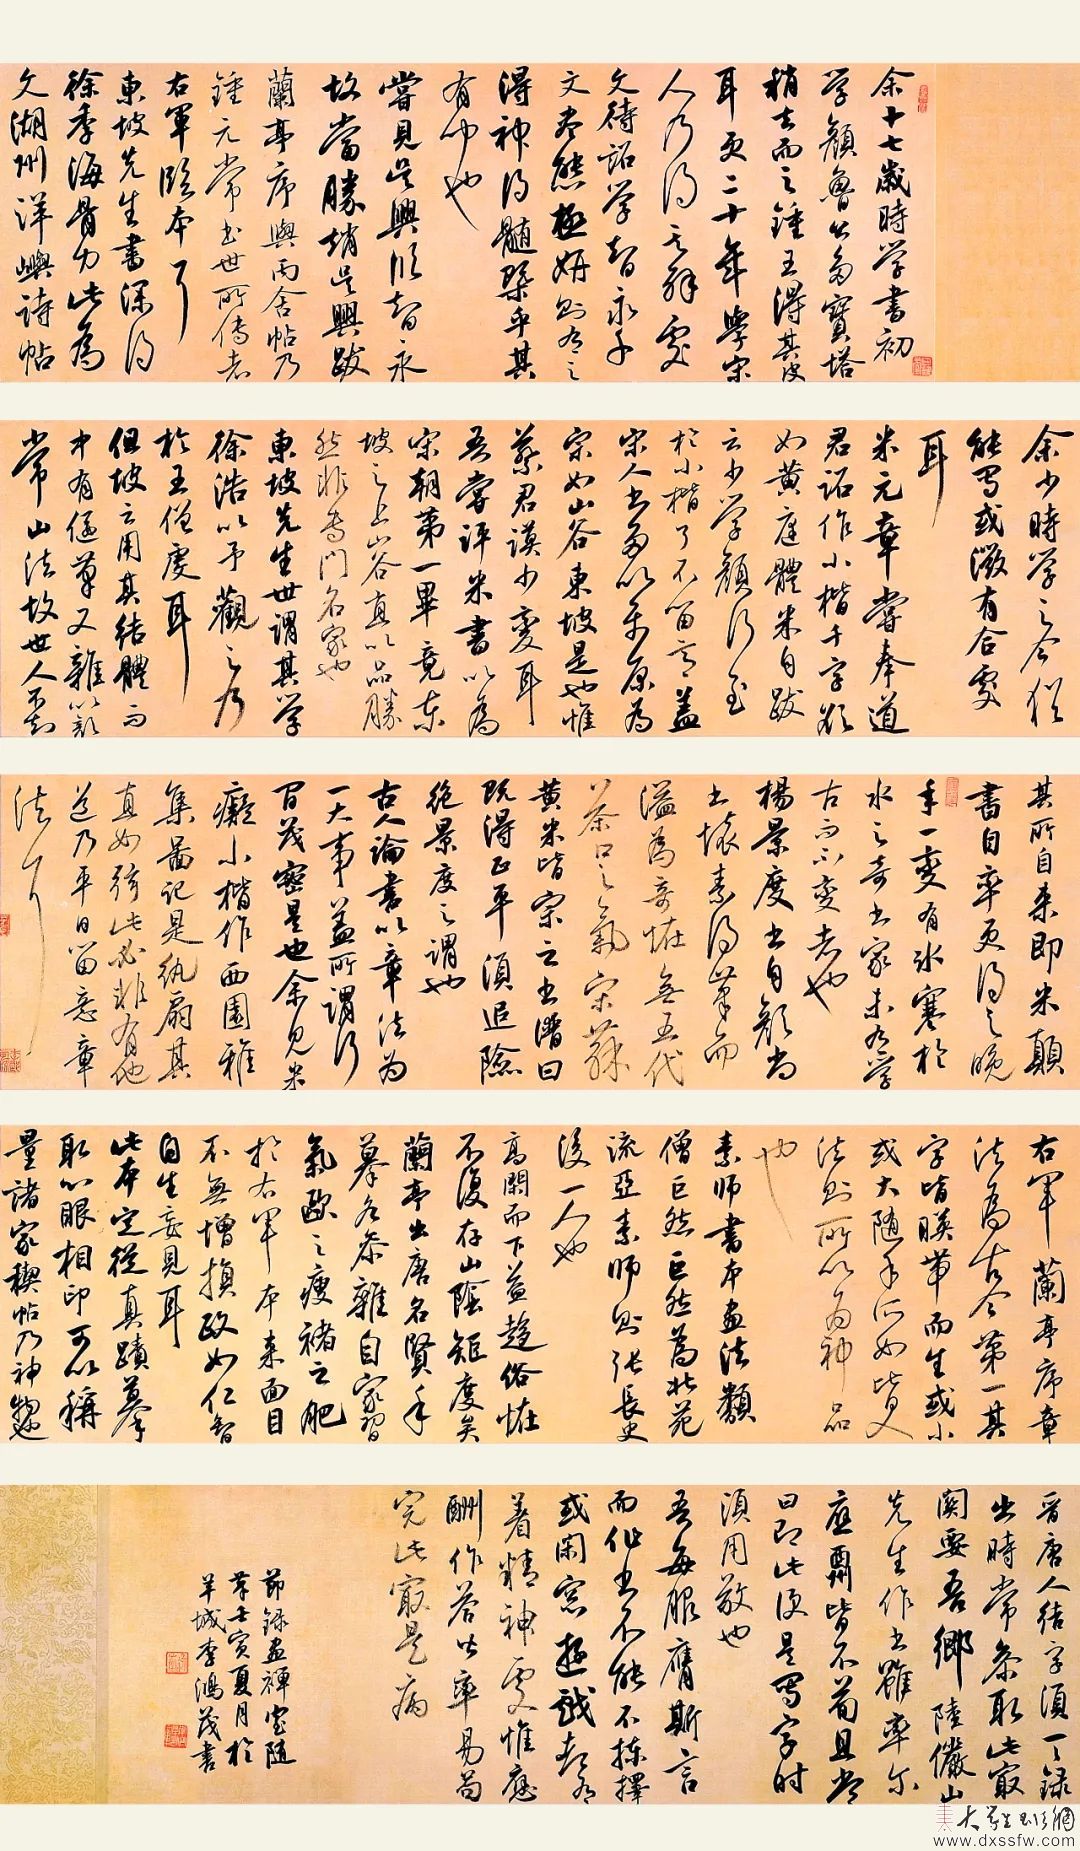 余十七歲時学書初
学顏魯公多寶塔
稍去而之鍾王得其皮
耳更二十年學宋
人乃得其解處
文待詔学智永千
文尽態極妍則有之
得神得髓槩乎其
有〇也
嘗見吳興臨智永
故當勝趙吳興跋
蘭亭序與丙舍帖乃
鍾元常书世所傳者
右軍臨本耳
東坡先生書深得
徐季海骨力此為
文湖州洋嶼詩帖
余少時学之今猶
能寫或微有合處
耳
米元章嘗奉道
君詔作小楷千字欲
如黃庭體米自跋
云少学顏行至
於小楷了不留意蓋
宋人书多以平原為
宗如山谷東坡是也惟
蔡君謨少變耳
吾嘗評米書以為
宋朝第一畢竟在
坡之上山谷直以品勝
然非專門名家也
東坡先生世謂其学
徐浩以予觀之乃
於王僧虔耳
但坡云用其結體而
中有偃筆又雜以顏
常山法故世人不知
其所自来即米顛
書自率更得之晚
年一變有氷寒於
水之奇书家未有学
古而不變者也
楊景度书自顏尚
书懷素得筆而
溢為奇怪無五代
茶〇之氣宋蘇
黃米皆宗之书譜曰
既得正平須追險
絶景度之謂也
古人論書以章法为
一大事蓋所謂行
間茂密是也余見米
癡小楷作西園雅
集圖記是紈扇其
直如弦此必非有他
道乃平日留意章
法耳
右軍蘭亭序章
法為古今第一其
字皆暎帶而生或小
或大随手所如皆入
法則所以為神品
也
素師書本畫法類
僧巨然巨然為北苑
流亞素師則張長史
後一人也
高閑而下益趨俗怪
不復存山陰矩度矣
蘭亭出唐名賢手
摹各參雜自家習
氣歐之瘦褚之肥
於右軍本来面目
不無增損政如仁智
自生妄見耳
此本定從真蹟摹
取心眼相印可以稱
量諸家禊帖乃神物也
晋唐人結字須一一録
出時常參取此最
關要吾鄉陸儼山
先生作书雖率尔
應酬皆不茍且常
曰即此便是寫字時
須用敬也
吾每服膺斯言
而作书不能不揀擇
或闲窓遊戲都有
着精神處惟應
酬作荅皆率易茍
完此最是病
節録畫禪室随
筆壬寅夏月於
羊城李鴻茂書
大学生书法網
www.dxssfw.com